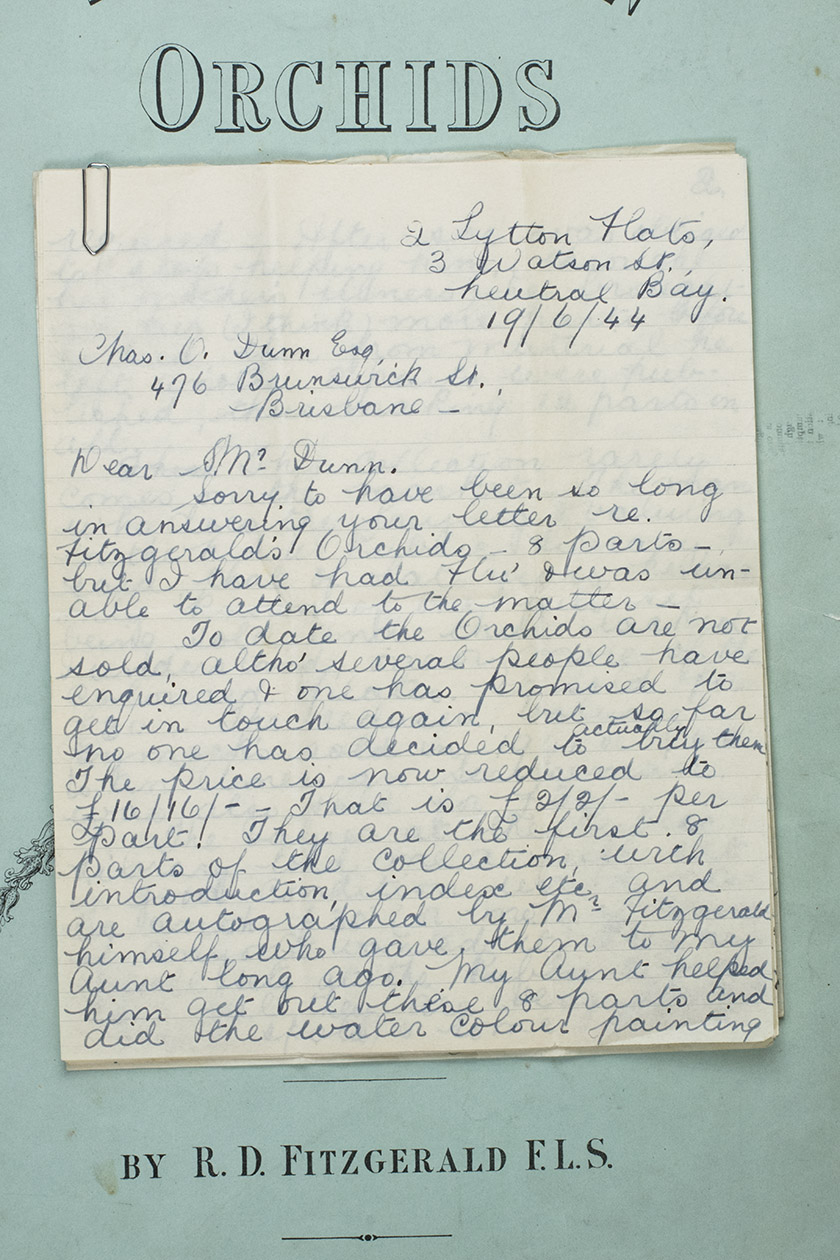 ORCHIDS
2 Lytton Flats,
3 Watson St.,
Neutral Bay.
19/6/44
Chas. O. Dunn Esq,
476 Brunswick St.,
Brisbane –
Dear Mr. Dunn.
Sorry to have been so long
in answering your letter re.
Fitzgerald's Orchids – 8 parts –
but I have had 'Flu' & was un-
able to attend to the matter –
To date the Orchids are not
sold, altho' several people have
enquired & one has promised to
get in touch again, but so far
no one has decided to actually buy them
The price is now reduced to
£16/16/- – That is £2/2/- per
part! They are the first 8
parts of the collection, with
introduction, index etc, and
are autographed by Mr. Fitzgerald
himself, who gave them to my
Aunt long ago. My Aunt helped
him get out these 8 parts and
did the water colour painting
BY R. D. FITZGERALD F.L.S.